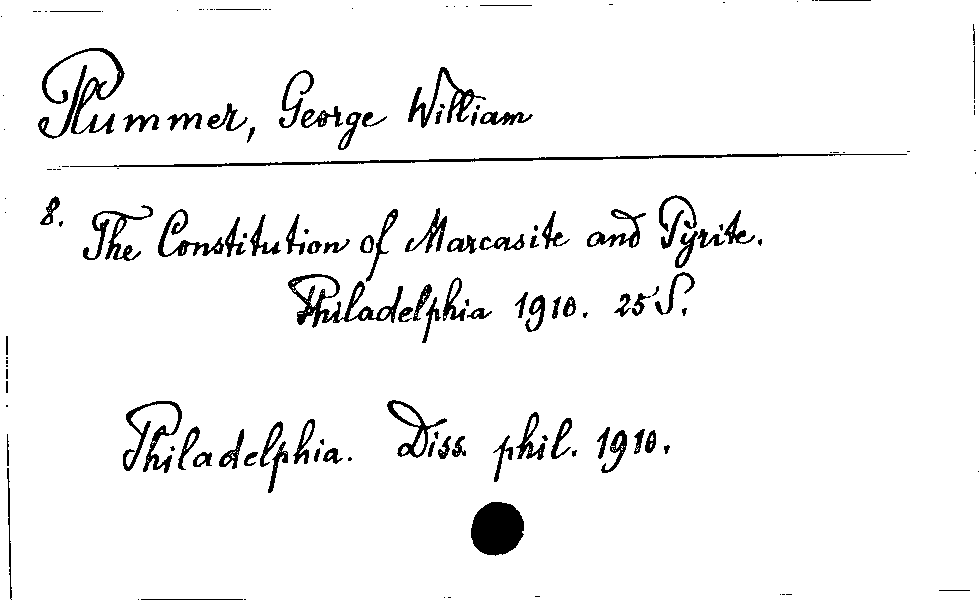 Plummer, George William
8. The Constitution of Marcasite and Pyrite.
Philadelphia 1910. 25 S.
Philadelphia. Diss. phil. 1910.